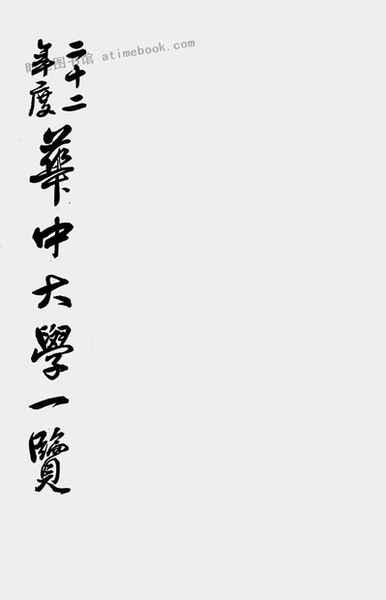 二十二
年度
華中大學一覽
图书馆 atimebook.com